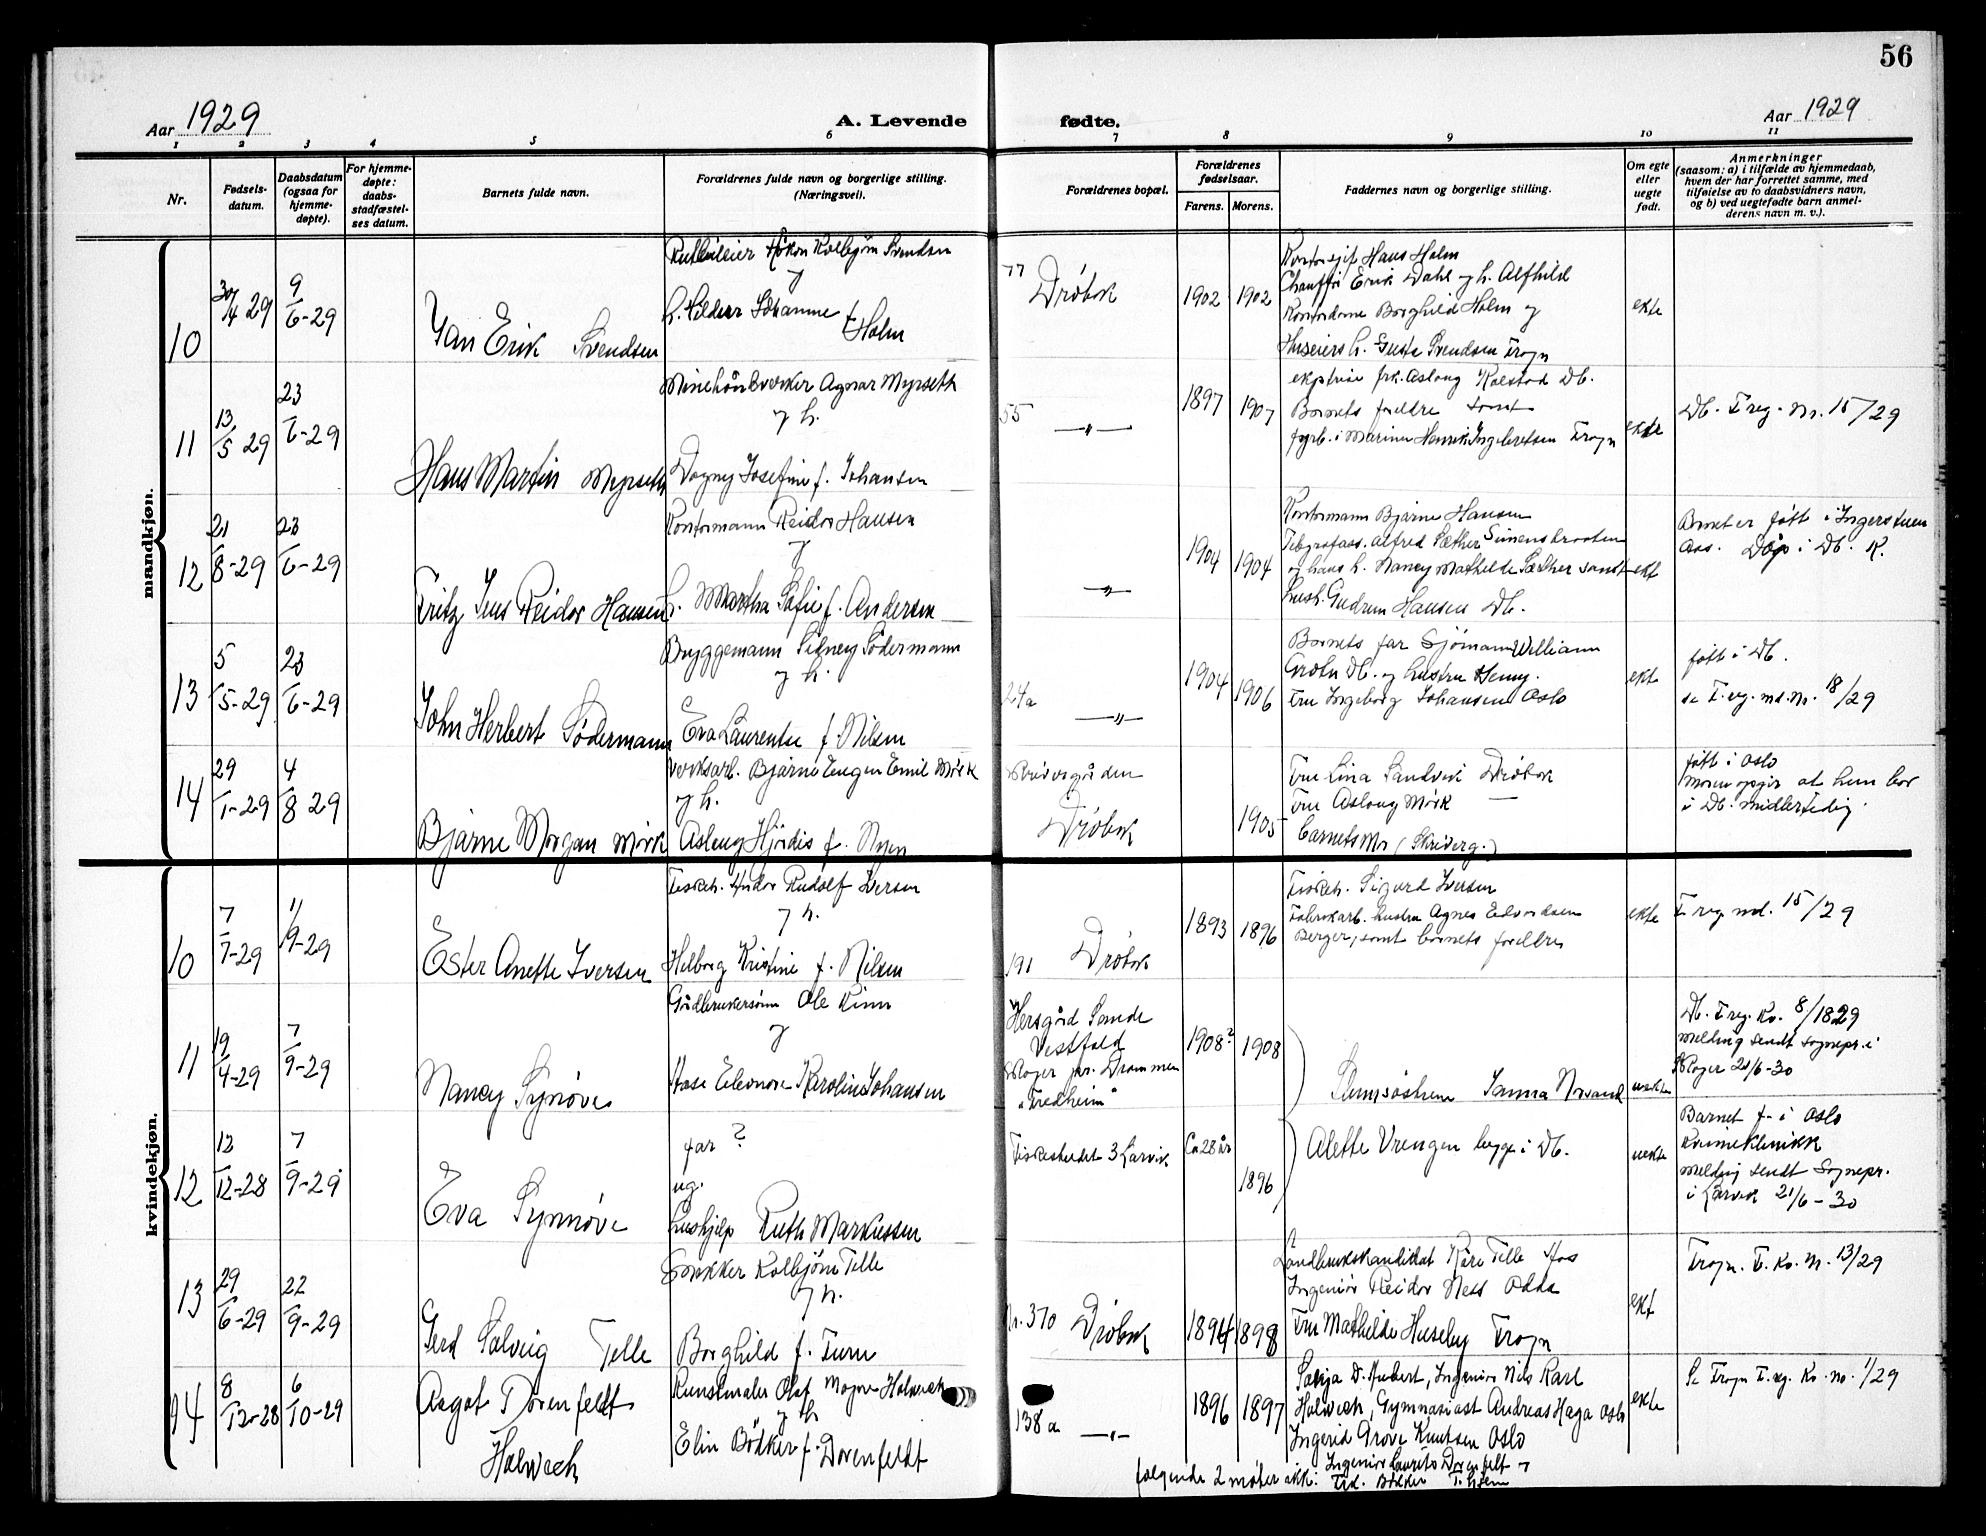 56
Aar 1929
A. Levende
fødte.
Aar 1929
1 2 3 4 5 6 7 8 9 10 11
Nr.
Fødsels-
datum.
Daabsdatum
(ogsaa for
hjemme-
døpte).
For hjemme-
døpte:
daabs-
stadfæstel-
ses datum.
Barnets fulde navn.
Forældrenes fulde navn og borgerlige stilling.
(Næringsvei).
Forældrenes bopæl.
Forældrenes
fødselsaar.
Farens. Morens.
Faddernes navn og borgerlige stilling.
Om egte
eller
uegte
født.
Anmerkninger
(saasom: a) i tilfælde av hjemmedaab,
hvem der har forrettet samme, med
tilføielse av to daabsvidners navn,
og b) ved uegtefødte barn anmel-
derens navn m. v.).
mandkjøn.
10
30/4 29
9/6-29
Jan Erik Svendsen
Håkon Kolbjørn Svendsen
y
h. Johanne f. Holm
77 Drøbak
1902 1902
Hans Holm
Erik Dahl og h. Alfhild
Kontordame Borghild Holm og
Huseiers h. Svendsen Frogn
ekte
11
13/5 29
23/6-29
Hans Martin Myrseth
Minehåndverker Agnar Myrseth
y h.
Dagny Josefine f. Johansen
55 —"—
1897 1907
frk. Aslaug Kolstad Db.
Barnets foreldre samt
i Marinen Henrik Ingebretsen Frogn
ekte
Db. F. reg. nr. 15/29
12
21/8-29
23/6-29
Fritz Jens Reidar Hansen
Kontormann Reidar Hansen
y
h. Martha Sofie f. Andersen
—"—
1904 1904
Kontormann Bjarne Hansen
Telegrafass. Alfred Sæther Simenskroaten
og hans h. Nancy Mathilde Sæther samt
Gudrun Hansen Db.
ekt
Barnet er født i Ingerstuen
Aas. Døp i Db. K.
13
5/5-29
23/6-29
John Herbert Södermann
Bryggemann Sidney Södermann
y h.
Eva Laurentse f. Nilsen
24a —"—
1904 1906
Barnets far Sjömann William
Db. og hustru Henny.
Fru Ingeborg Johansen Oslo
ekte
født i Db.
se F. reg. md. nr. 18/29
14
29/1-29
4/8 29
Bjarne Morgan Mörk
Verksarb. Bjarne Eugen Emil Mörk
y h.
Aslaug Hjördis f. Nyen
Skrivergården
Drøbak
1905
Fru Lina Sandvik Drøbak
Fru Aslaug Mörk —
barnets Mor (Skriverg.)
født i Oslo
Moren opgir at hun bor
i Db. midlertidig.
kvindekjøn.
10
7/7-29
1/9-29
Ester Anette Iversen
Fiskeh. Andor Rudolf Iversen
y h.
Helborg Kristine f. Nilsen
191 Drøbak
1893 1896
Fiskeh. Sigurd Iversen
Fabrikarb. hustru Agnes Edvardsen
Berger, samt barnets foreldre
ekte
F. reg. md. 15/29
11
19/4-29
7/9-29
Nancy Synøve
Gårdbrukersønn Ole Kinn
y
Aase Eleonore Karoline Johansen
Hersgård Sande
Vestfold
Skoger pr. Drammen
"Fredheim"
1908? 1908
Sanna Norsand
uekte
Db. F. reg. Kv. 8/1829
melding sendt sognepr. i
Skoger 21/6-30
12
13/12-28
7/9-29
Eva Synnøve
far ?
ug.
Hushjelp Ruth Markussen
3 Larvik
Ca 28 år
1896
Alette Vrengen begge i Db.
uekte
Barnet f. i Oslo
Kvinneklinikk
melding sendt Sognepr.
i Larvik 21/6-30
13
29/6-29
22/9-29
Gerd Solveig Telle
Kolbjørn Telle
y h.
Borghild f. Furu
Nr. 370 Drøbak
1894 1898
Landbrukskandidat Kåre Telle Aas
Ingeniör Reidar Ness Odda
Fru Mathilde Huseby Frogn
ekt
Frogn. F. Kv. Nr. 13/29
14
8/12-28
6/10-29
Aagot Dorenfeldt
Holwech
Kunstmaler Olaf Magne Holwech
y h
Elin Bödker f. Dorenfeldt
138a —"—
1896 1897
Solja D. Aubert, Ingeniör Nils Karl
Holwech, Gymnasiast Andreas Haga Oslo
Ingerid Grove Knutsen Oslo
Ingeniör Laurits Dorenfelt y
følgende 2 møter ikke: Frd. Bödker T. hjem
ekte
Se Frogn F. reg. Kv. no. 1/29